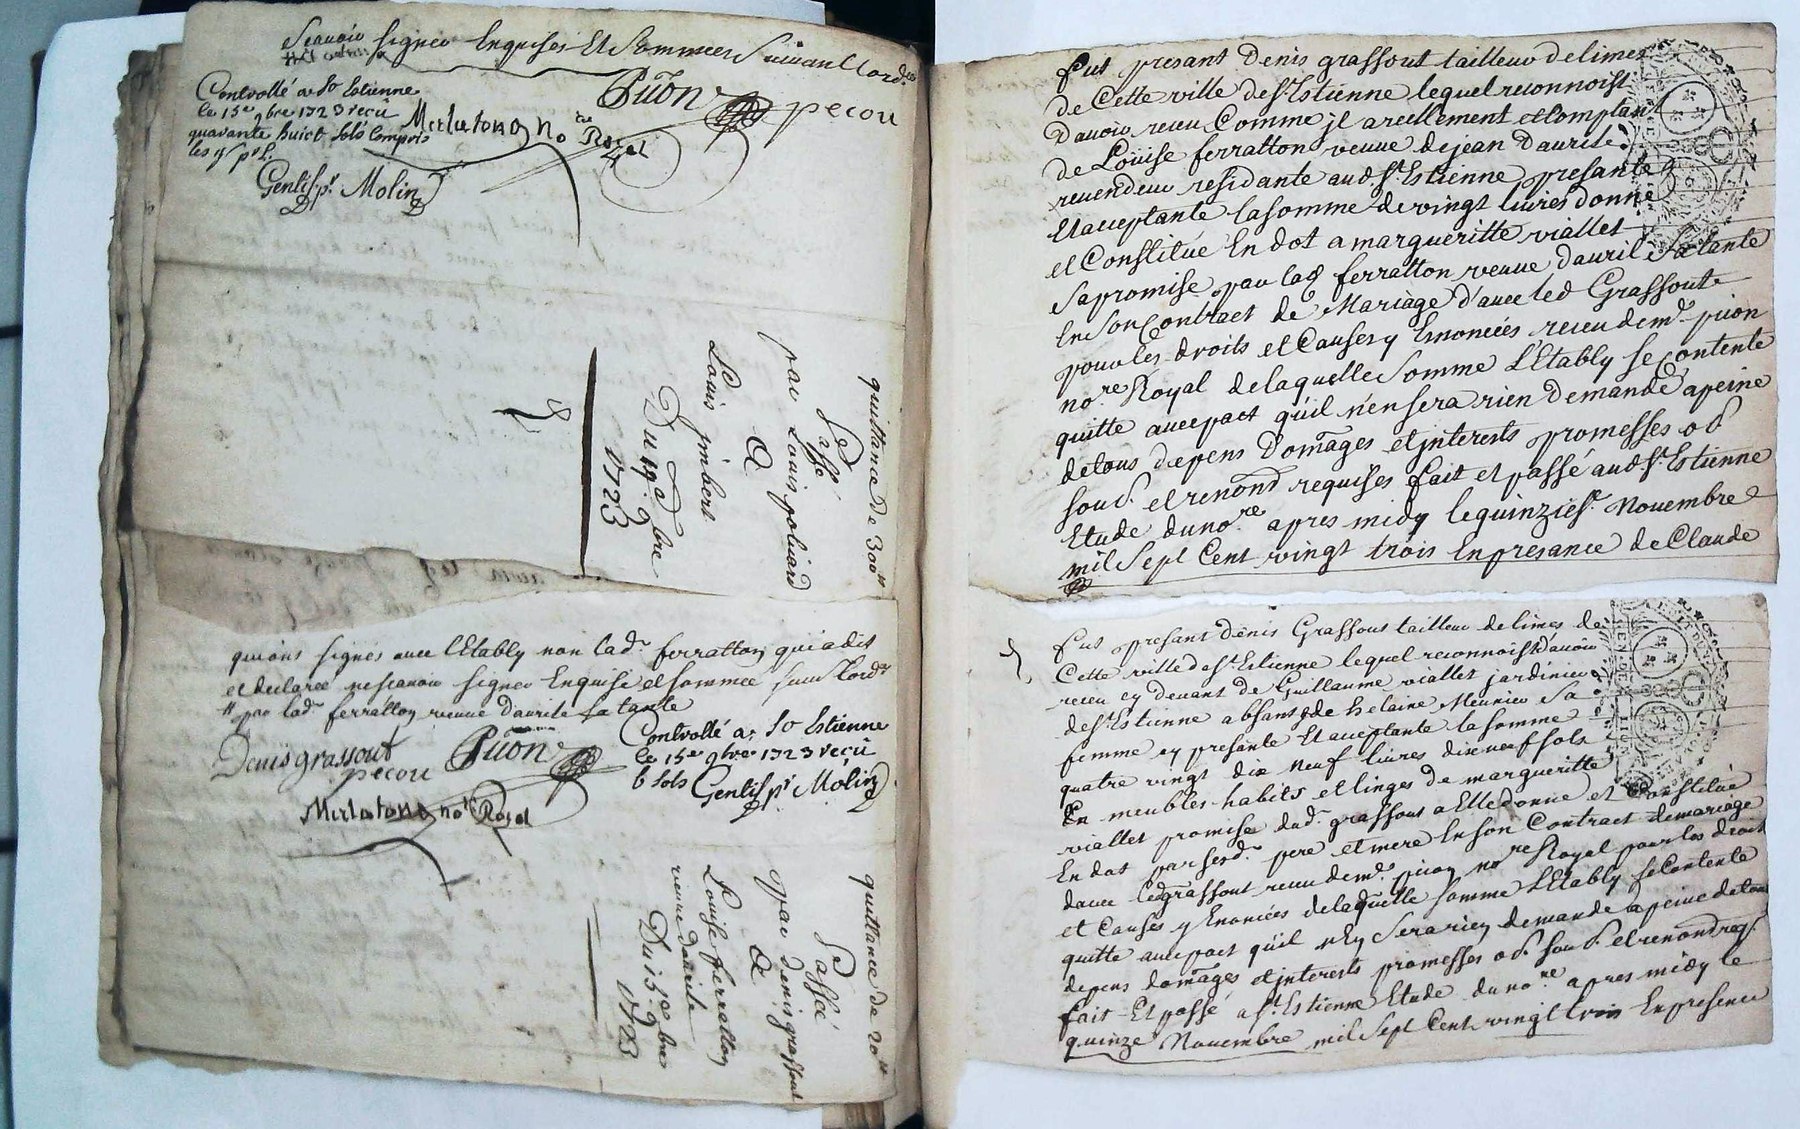 Scauoir signer Enquises Et Sommees Suiuant Lord.ce
Controllé a St Estienne
le 15e 9bre 1723 reçû
quarante huict sols Compris
les
Gentis pr Molin
Puön
pecou
Merlaton no.re Royal
quittance de 300tt
passé
par Louis joliuard
A
Sr Louis jmbert
Du 9bre
1723
quiont signés auec l'Etably non lad. ferratton quiadit
et declaree nescauoir signer Enquise et sommee suiu. lord.ce
par lad. ferratton veuue daurile sa tante
Denis grassout
pecou
Puön
Merlaton no.re Royal
Controllé a St Estienne
le 15e 9bre 1723 reçû
6 sols Gentis pr Molin
quittance de 20tt
Passée
par denis grassout
A
Louise ferratton
veuue daurile
Du 15e 9bre
1723
fut presant Denis grassout tailleur delimes
de Cette ville de St Estienne lequel reconnoist
Dauoir receu Comme jl a reellement et Comptant
de Loüise ferratton veuue de jean Daurile
reuendeur residante aud St Estienne presante
Et acceptante la somme de vingt liures donné
et Constitué En dot a margueritte viallet
sapromise par lad ferratton veuue dauril Sa tante
En son Contract de Mariage d'auec led Grassout
pour les droits et Causes y Enoncées receu de me. puon
no.re Royal de laquelle somme L'Etably se Contente
quitte auec pact qu'il n'en sera rien Demandé a peine
de tous depens Domãges et jnterests promesses ob
soud. et renond requises fait et passé aud St Estienne
Etude du no.re apres midy le quinzies. Nouembre
mil Sept Cent vingt trois En presance de Claude
fut presant denis Grassout tailleur de limes de
Cette ville de St Estienne lequel reconnoist dauoir
receu cy deuant de Guillaume viallet jardinier
de St Estienne absant & de helaine Meunier Sa
femme cy presante Et acceptante la somme
quatre vingt dix neuf liures dixneuf sols
En meubles habits et linges de margueritte
viallet promise dud. grassout a Elle donné et Constitué
En dot par sesd. pere et mere En son Contract de mariage
dauec led grassout receu de me. puon no.re Royal pour les droits
et Causes y Enoncées de laquelle somme L'Etably se Contente
quitte auec pact qu'il n'En Sera rien demandé a peine de tous
depens domãges et jnterests promesses ob. soud. et renond req.
fait Et passé a St Estienne Etude du no.re apres midy le
quinze Nouembre mil Sept Cent vingt trois En presence